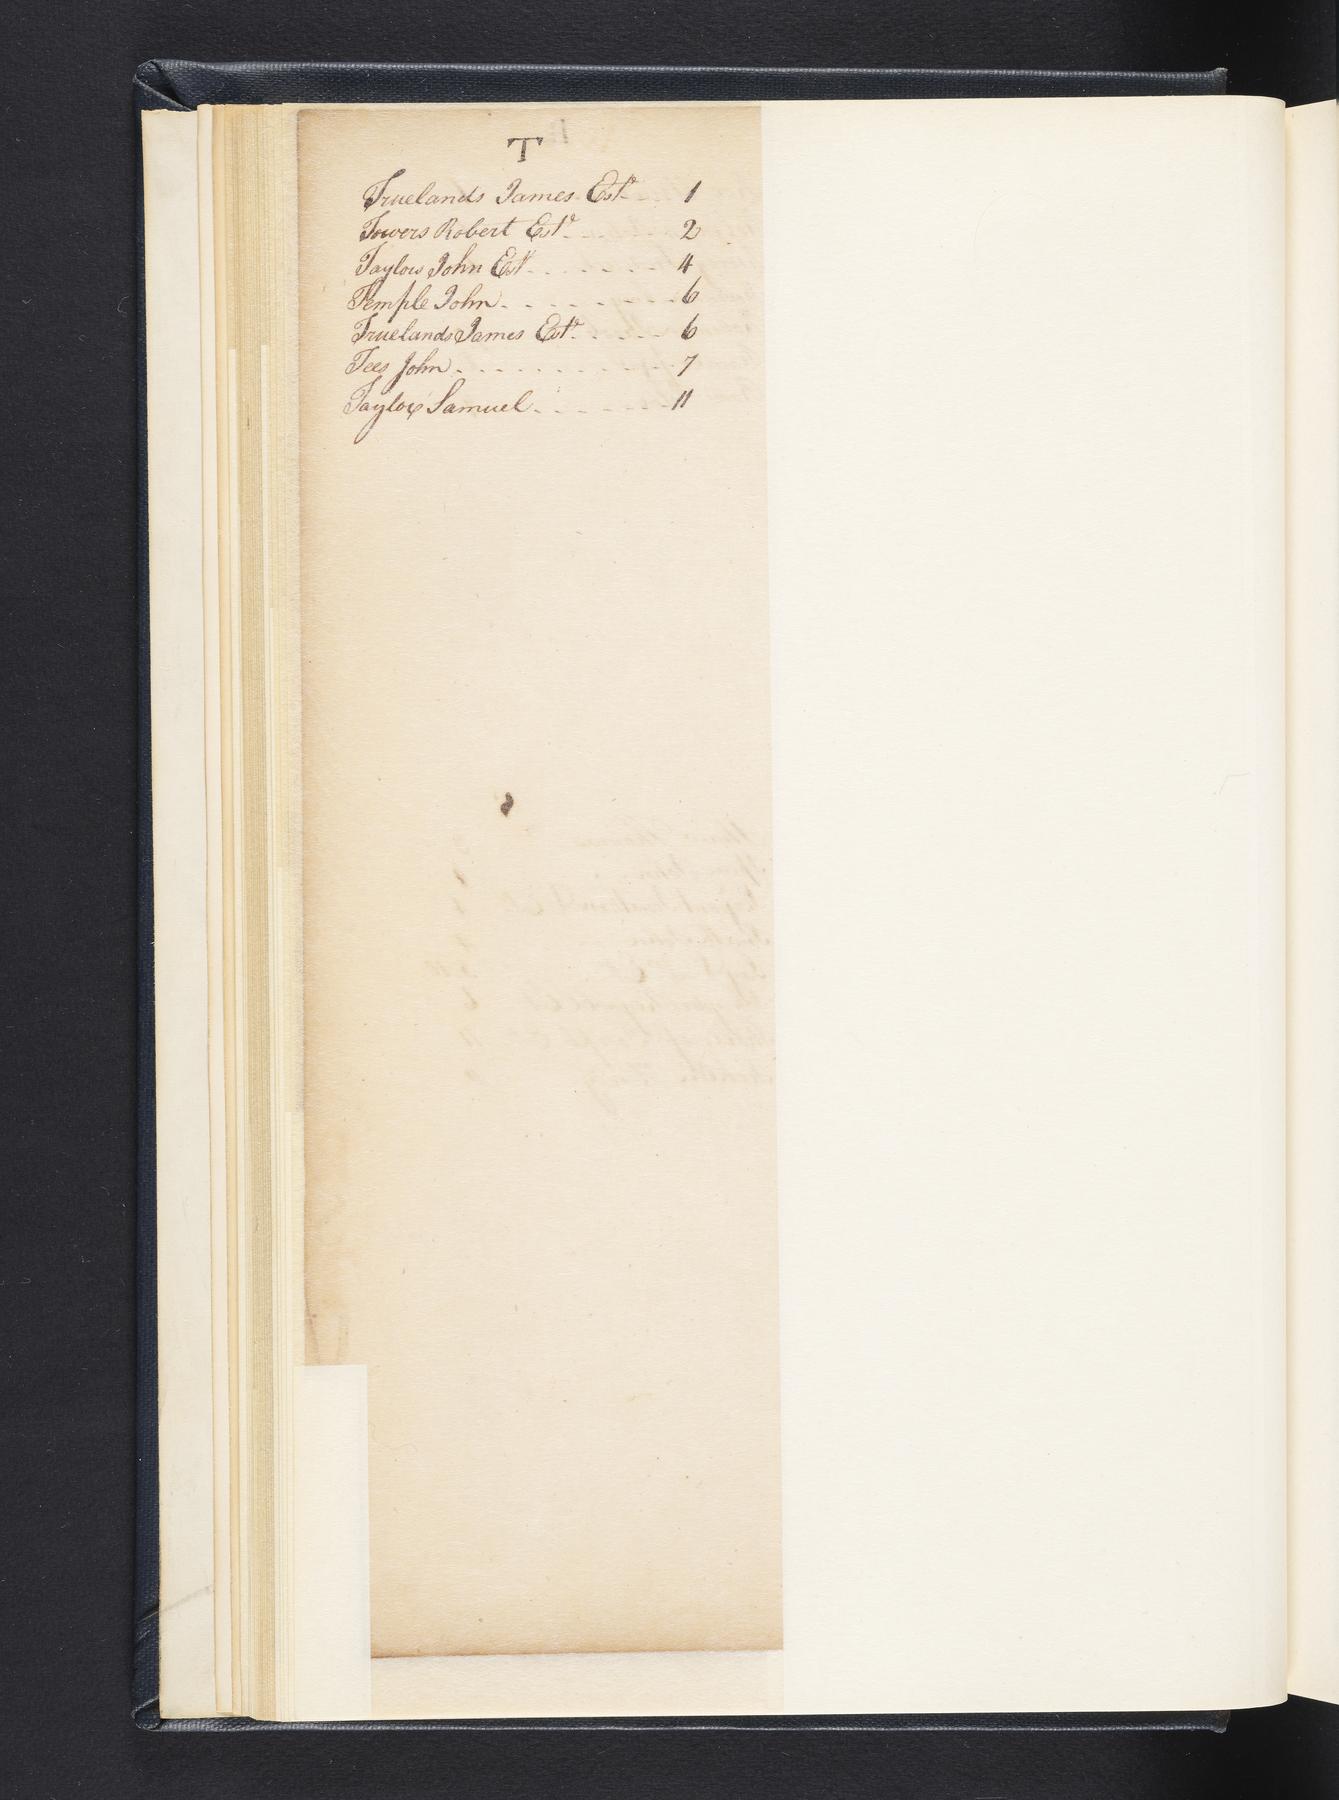 T
Truelands James Est.r 1
Towers Robert Est.r 2
Taylors John Est.r 4
Temple John 6
Truelands James Est.r 6
Tees John 7
Taylor Samuel 11